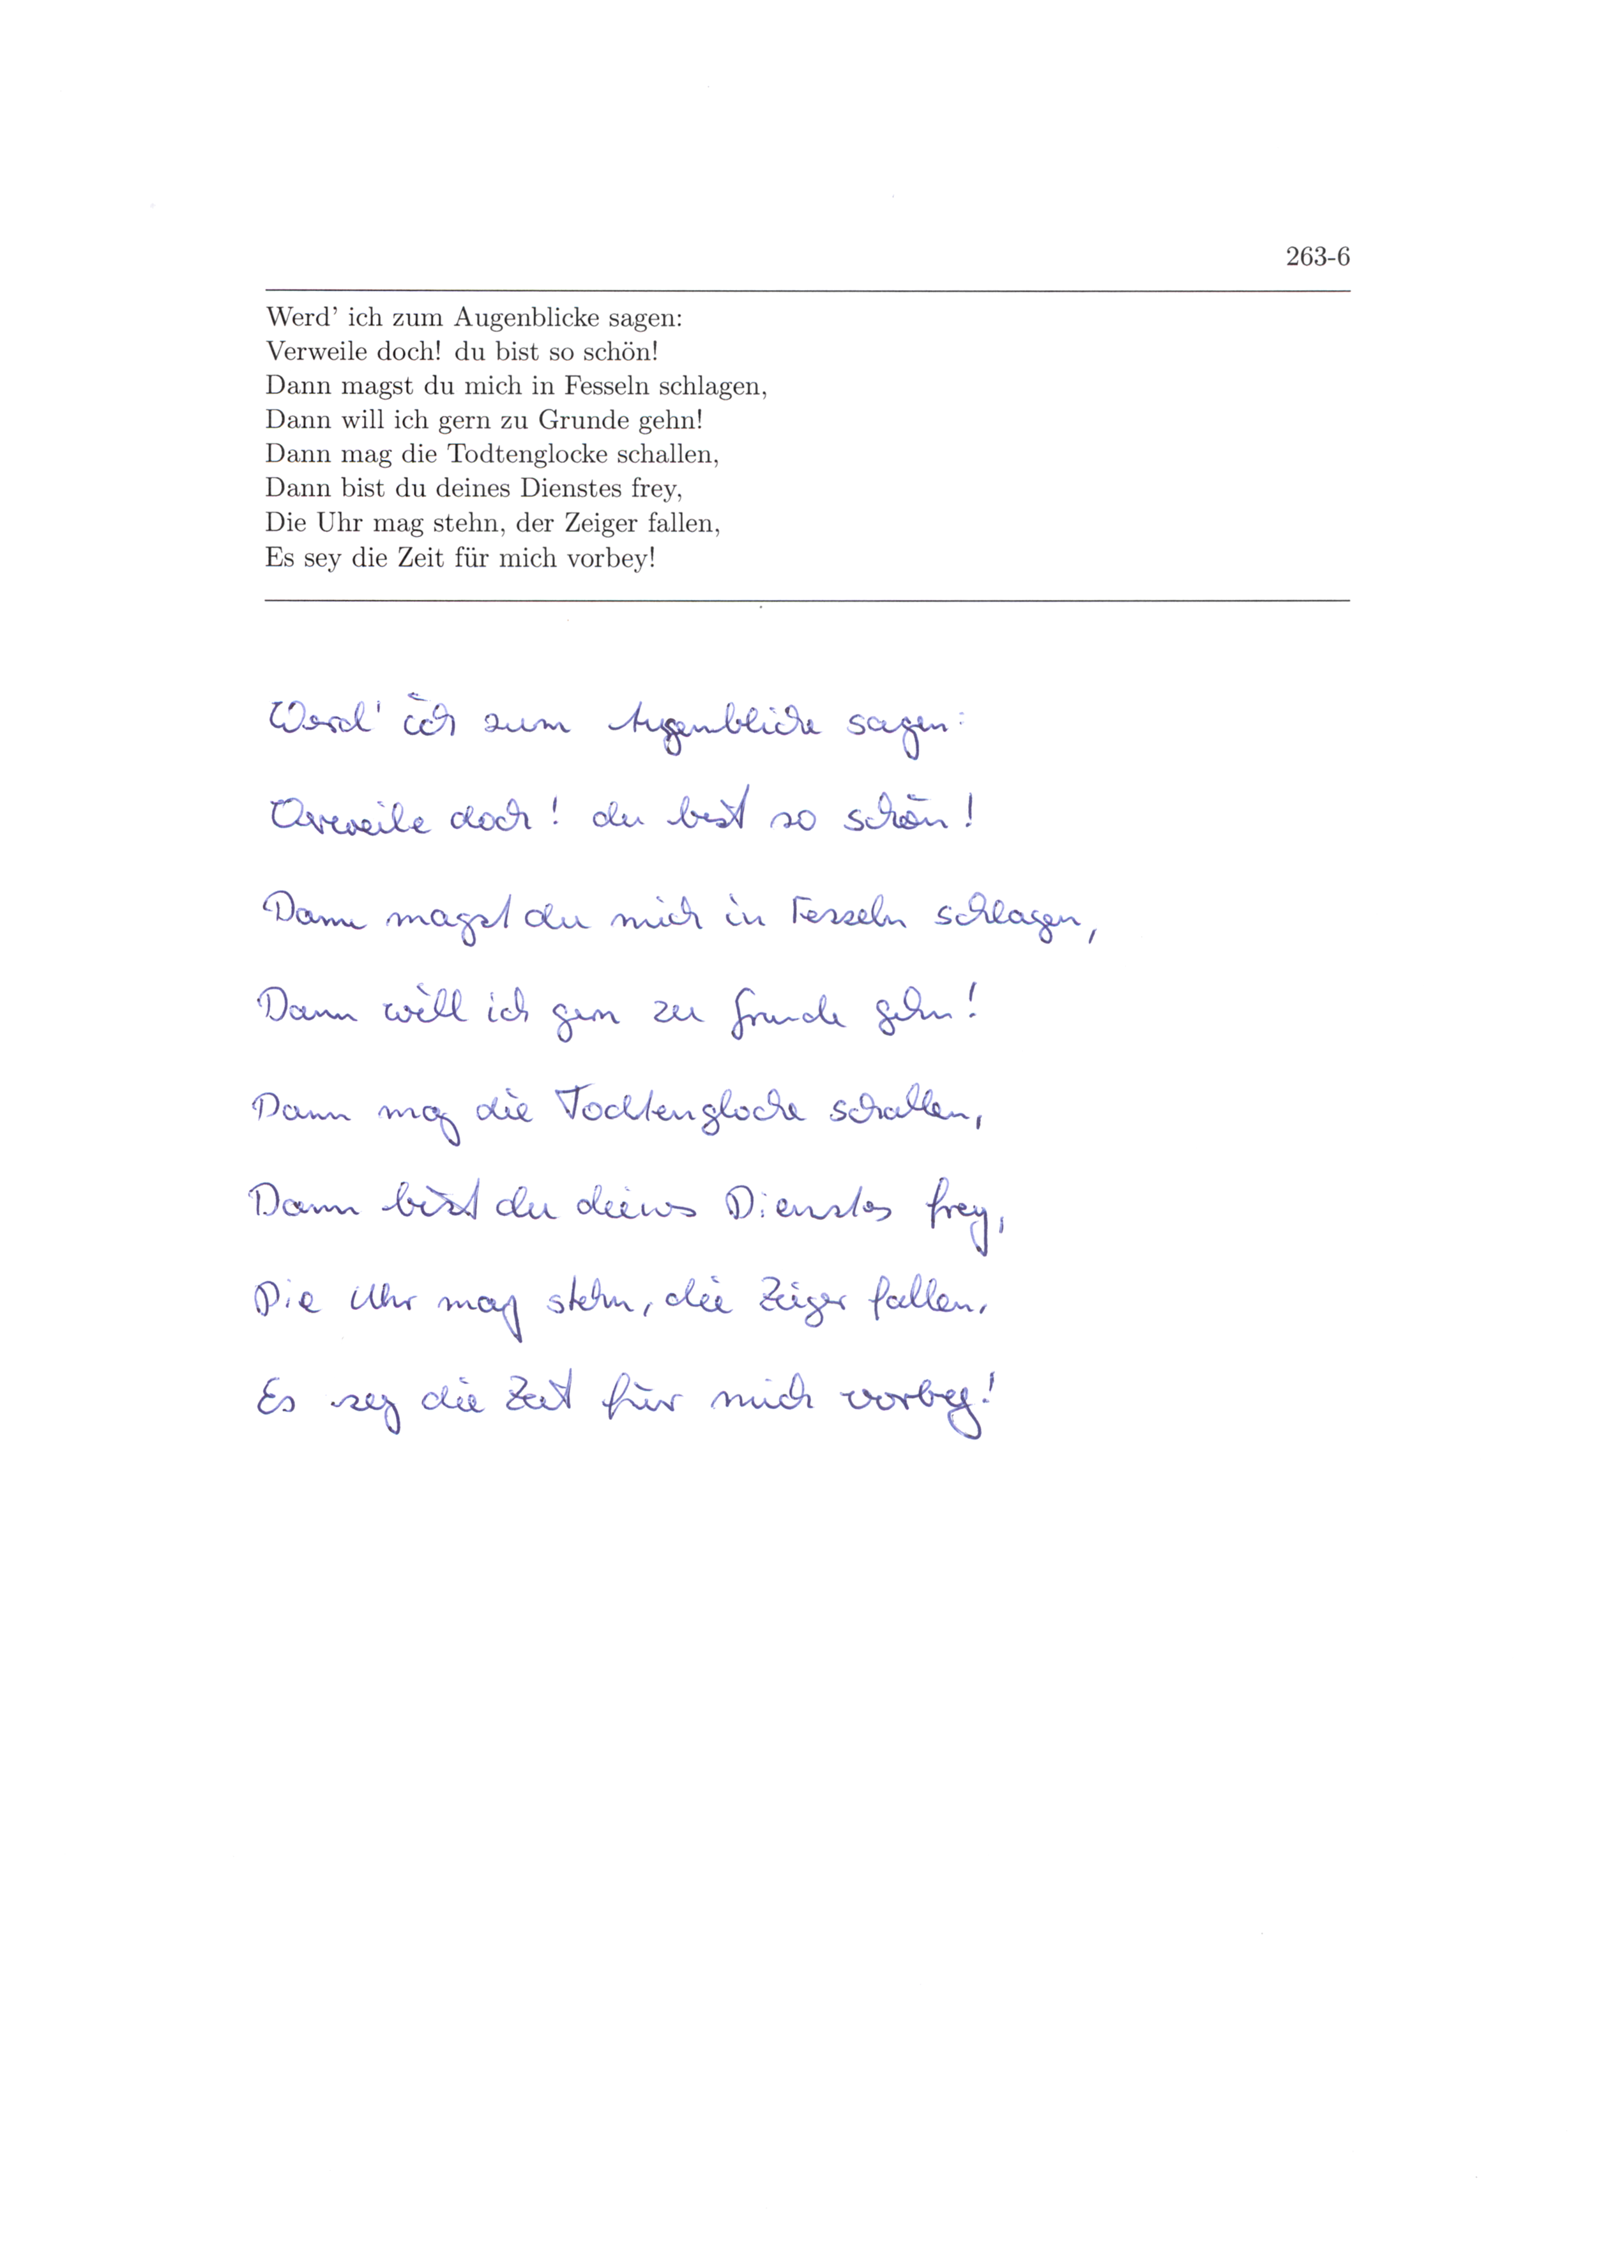 263-6
Werd' ich zum Augenblicke sagen:
Verweile doch! du bist so schön!
Dann magst du mich in Fesseln schlagen,
Dann will ich gern zu Grunde gehn!
Dann mag die Todtenglocke schallen,
Dann bist du deines Dienstes frey,
Die Uhr mag stehn, der Zeiger fallen,
Es sey die Zeit für mich vorbey!
Werd' ich zum Augenblicke sagen:
Verweile doch! du bist so schön!
Dann magst du mich in Fesseln schlagen,
Dann will ich gern zu Grunde gehn!
Dann mag die Todtenglocke schallen,
Dann bist du deines Dienstes frey,
Die Uhr mag stehn, die Zeiger fallen,
Es sey die Zeit für mich vorbey!